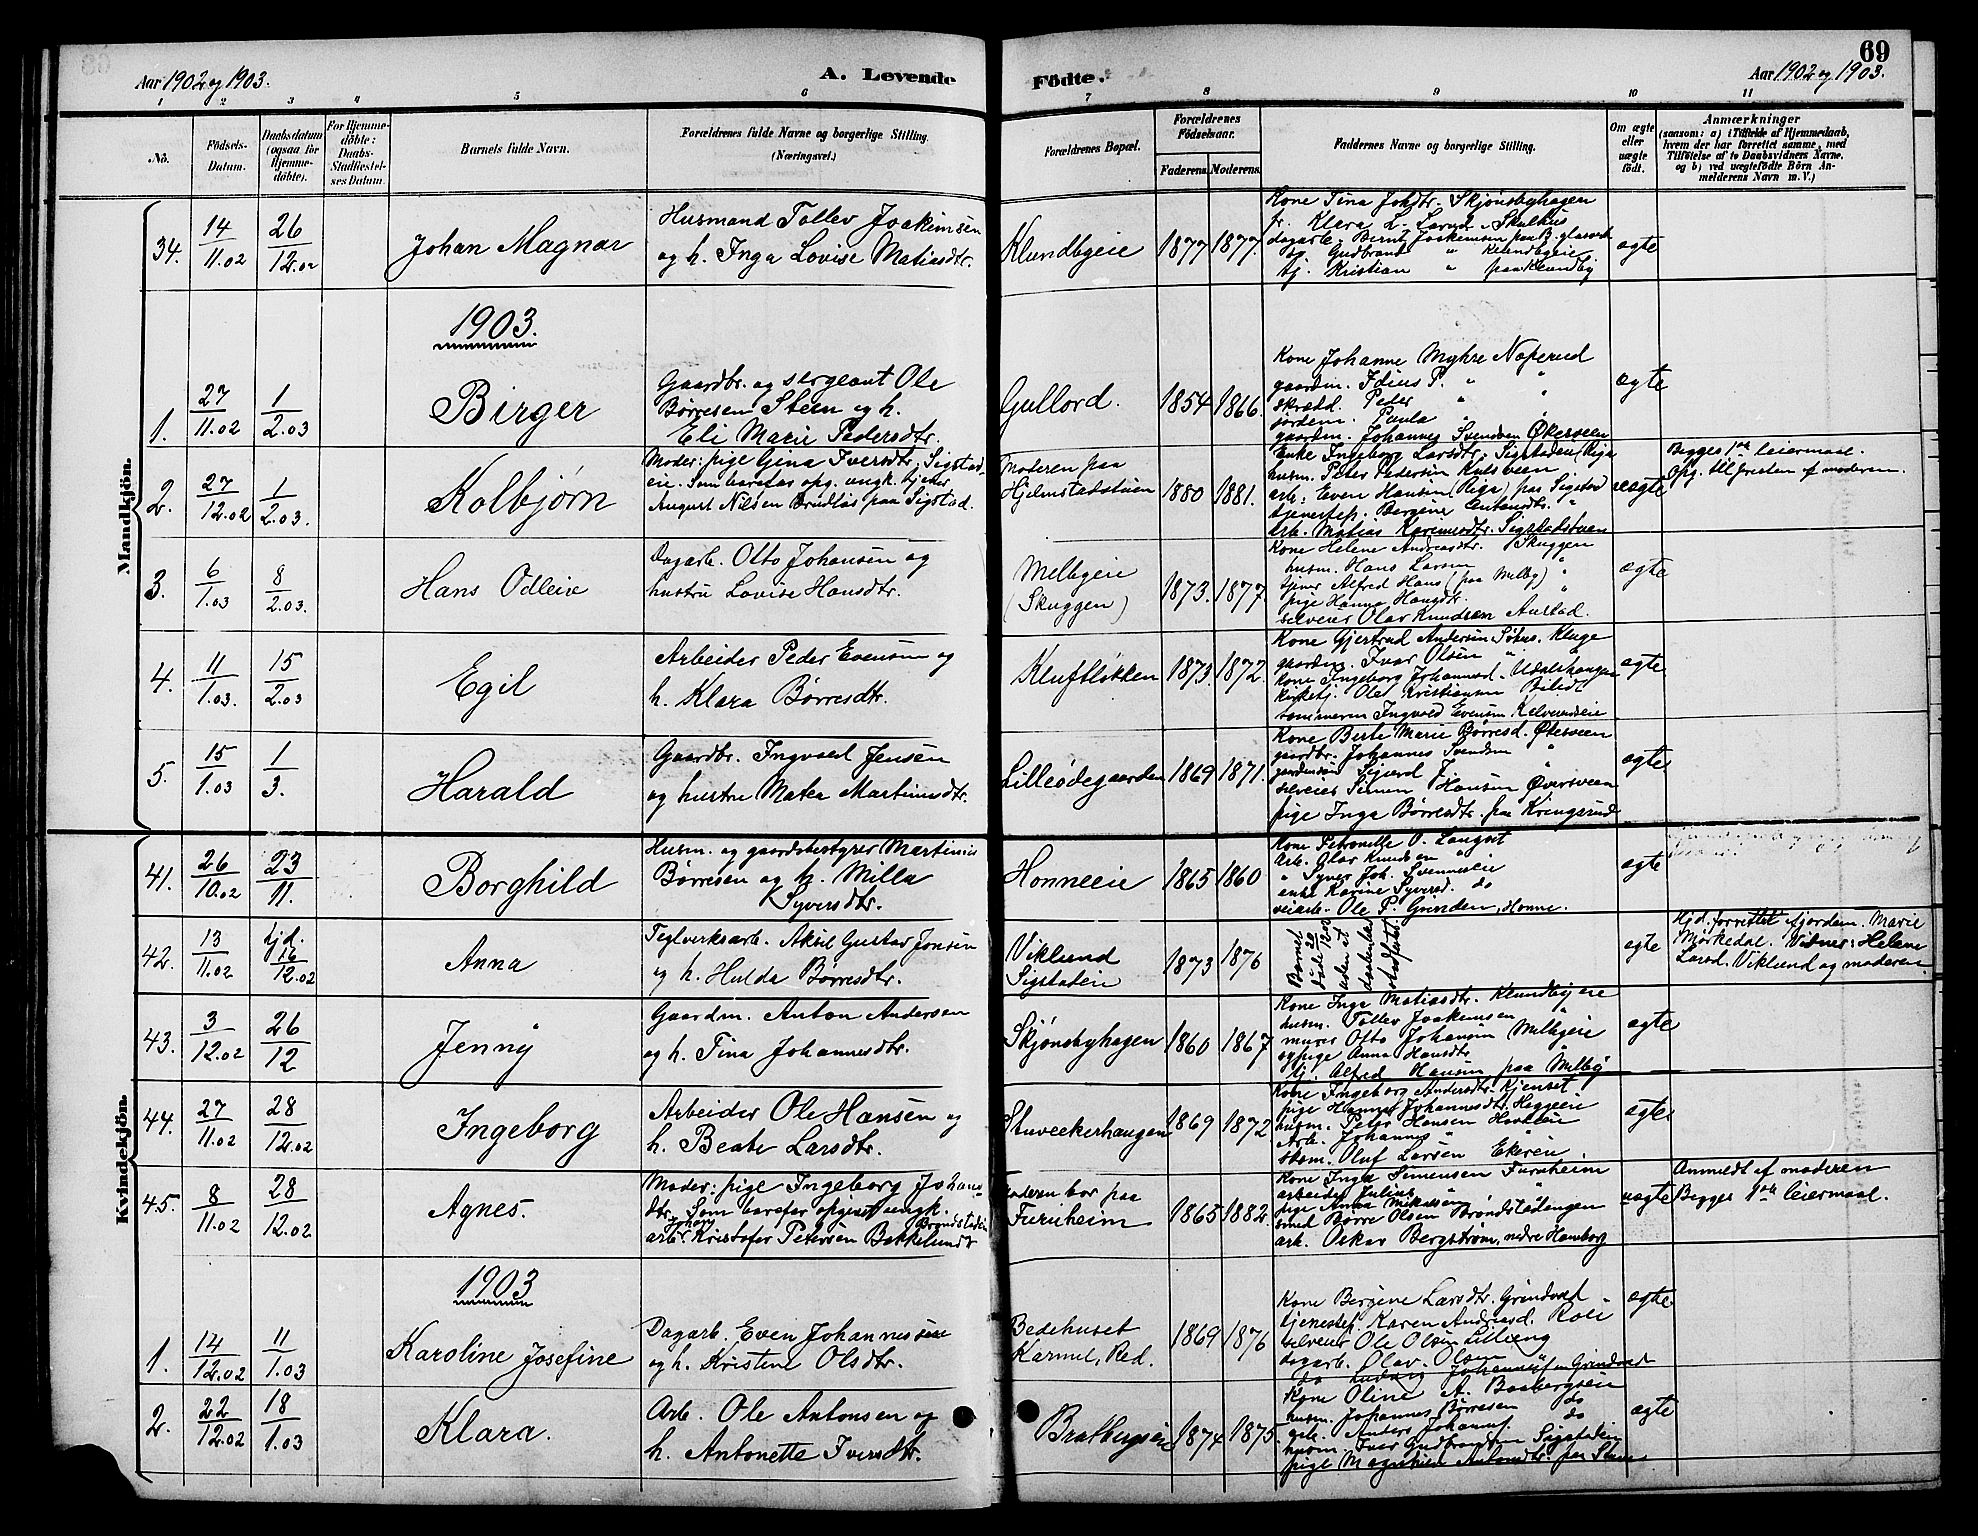 69
Aar 1902 og 1903.
A. Levende
Födte.
Aar 1902 og 1903.
1 2 3 4 5 6 7 8 9 10 11
No.
Födsels-Datum.
Daabsdatum (ogsaa for Hjemme-döbte).
For Hjemme-döbte: Daabs-Stadfæstel-ses Datum.
Barnets fulde Navn.
Forældrenes fulde Navne og borgerlige Stilling.
(Næringsvei.)
Forældrenes Bopæl.
Forældrenes Födselsaar.
Faderens. Moderens.
Faddernes Navne og borgerlige Stilling.
Om ægte eller uægte födt.
Anmærkninger
(saasom: a) i Tilfælde af Hjemmedaab,
hvem der har forrettet samme, med
Tilföielse af to Daabsvidners Navne.
og b) ved uægtefödte Börn An-
melderens Navn m. V.)
Mandkjön.
34. 14/11.02 26/12.02 Johan Magnar
Husmand Tollev Joakimsen
og h. Inga Lovise Matiasdtr.
Klundbyeie 1877 1877.
Kone Tina Johdtr. Skjønsbyhagen
fr. Klara L. Skulhus
dagarb. Bernt Joakimsen paa
Gudbrand " Klundbyeie
tj. Kristian " paa Klundby
ægte
1903.
1. 27/11.02 1/2.03 Birger
Gaardbr. og sergeant Ole
Børresen Steen og h.
Eli Marie Pedersdtr.
Gullord. 1854 1866.
Kone Johanne Myhre Nøperud
gaardm. Idius P. " "
skrædd. Peder " "
jordem. Paula " "
gaardm. Johannes Svendsen Økersveen
ægte
2. 27/12.02 1/2.03. Kolbjørn
Moder: pige Gina Iversdtr. Sigstad-
eie. Som barefar opg. ungk. tjener
August Nilsen Brudlos paa Sigstad.
Moderen paa
Hjelmstadstuen 1880 1881.
Enke Ingeborg Larsdtr. Sigstaden (Riga
husm. Peter Pedersen Kulsveen
arb. Even Hansen (Riga) paa Sigstad
tjenestep. Bergine Antonsdtr. "
arb. Matias Sigstadstuen
uægte
Begges 1ste leiermaal.
opg. til presten af moderen.
3. 6/1.03 8/2.03. Hans Odleiv
Dagarb. Otto Johansen og
hustru Lovise Hansdtr.
Melbyeie
(Skuggen) 1873. 1877
Kone Helene Andreasdtr. Skuggen
husm. Hans Larsen "
tjener Alfred Hans (paa Melby) "
pige Hanna Hansdtr.
selveier Olav Knudsen Austad.
ægte
4. 11/1.03. 15/2.03 Egil
Arbeider Peder Evensen og
h. Klara Børresdtr.
Kluftløkken 1873. 1872.
Kone Gjertrud Andersen Kluge
gaardm. Ivar Olsen "
kone Ingeborg Johannesd. Udalshaugen
kirketj. Ole Kristiansen Bilid
tømmerm Ingvald Evensen
ægte
5. 15/1.03 1/3. Harald
Gaardbr. Ingvald Jensen
og hustru Matea Martinusdtr.
Lilleødegaarden 1869 1871.
Kone Berte Marie Børresd. Økersveen
gaardbr. Johannes Svendsen "
gaardmsøn Sigvard J. "
selveier Simen Hansen Øversveen
pige Inga Børresdtr. paa Kringsrud
ægte
Kvindekjön.
41. 26/10.02 23/11. Borghild
Husm. og gaardsbestyrer Martinius
Børresen og h. Milla
Syversdtr.
Honneeie 1865 1860
Kone Petronelle O. Langset
Arb. Olav Knudsen "
" Syver Joh. Svenneseie
enke Karine Syversd. do
veiarb. Ole P. Grinden, Honne.
ægte
42. 13/11.02 hjd. 16/12.02 Anna
Teglverksarb. Aksel Gustav Jonsen
og h. Hulda Børresdtr.
Viklund
Sigstadeie 1873 1876
Barnet
døde 20/12 02
uden at
daaben blev
stadfæstet.
ægte
Hjd. forrettet af jordem. Marie
Mørkedal. Vidner: Helene
Larsd. Viklund og moderen.
43. 3/12.02 26/12 Jenny
Gaardm. Anton Andersen
og h. Tina Johannesdtr.
Skjønsbyhagen 1860 1867
Kone Inga Matiasdtr. Klundbyeie
husm. Tollev Joakimsen "
murer Otto Johansen Melbyeie
og pige Anna Hansdtr "
tj. Alfred Hansen paa Melby
ægte
44. 27/11.02 28/12.02 Ingeborg
Arbeider Ole Hansen og
h. Beate Larsdtr.
Stuveekerhaugen 1869 1872
Kone Ingeborg Andersdtr. Kjenset
pige Hanna Johannesdtr. Heggeeie
husm. Peter Hansen
Arb. Johannes "
skom. Oluf Larsen Ekereie.
ægte
45. 8/11.02 28/12.02 Agnes.
Moder: pige Ingeborg Johans-
dtr. Som barefar opgivet ungk.
arb. Johan Kristofer Petersen Bakkelund Brøndstadeie
Moderen bor paa
Furuheim 1865 1882.
Kone Inga Simensen Furuheim
arbeider Julius "
pige Anna Mikkelsen "
smed Børre Olsen Brøndstadengen
arb. Oskar Bergstrøm, nedre Hamborg
uægte
Anmeldt af moderen
Begges 1ste leiermaal.
1903
1. 14/12.02 11/1.03 Karoline Josefine
Dagarb. Even Johannessen
og h. Kristine Olsdtr.
Bedehuset
Karmel, Red. 1869 1876
Kone Bergine Larsdtr. Grindvold
tjenestep. Karen Andreasd. Roli
selveier Ole Olsen Lilleeng
dagarb. Olav Olsen
do Ludvig Johannes. Grindvold
ægte
2. 22/12.02 18/1.03 Klara.
Arb. Ole Antonsen og
h. Antonette Iversdtr.
Bratbergseie 1874 1875.
Kone Oline A. Baabergseie
husm. Johannes Børresen do
arb. Anders Johannes. do
husm. Iver Gudbrandsen Sigstadeie
pige Antonsdtr. paa
ægte